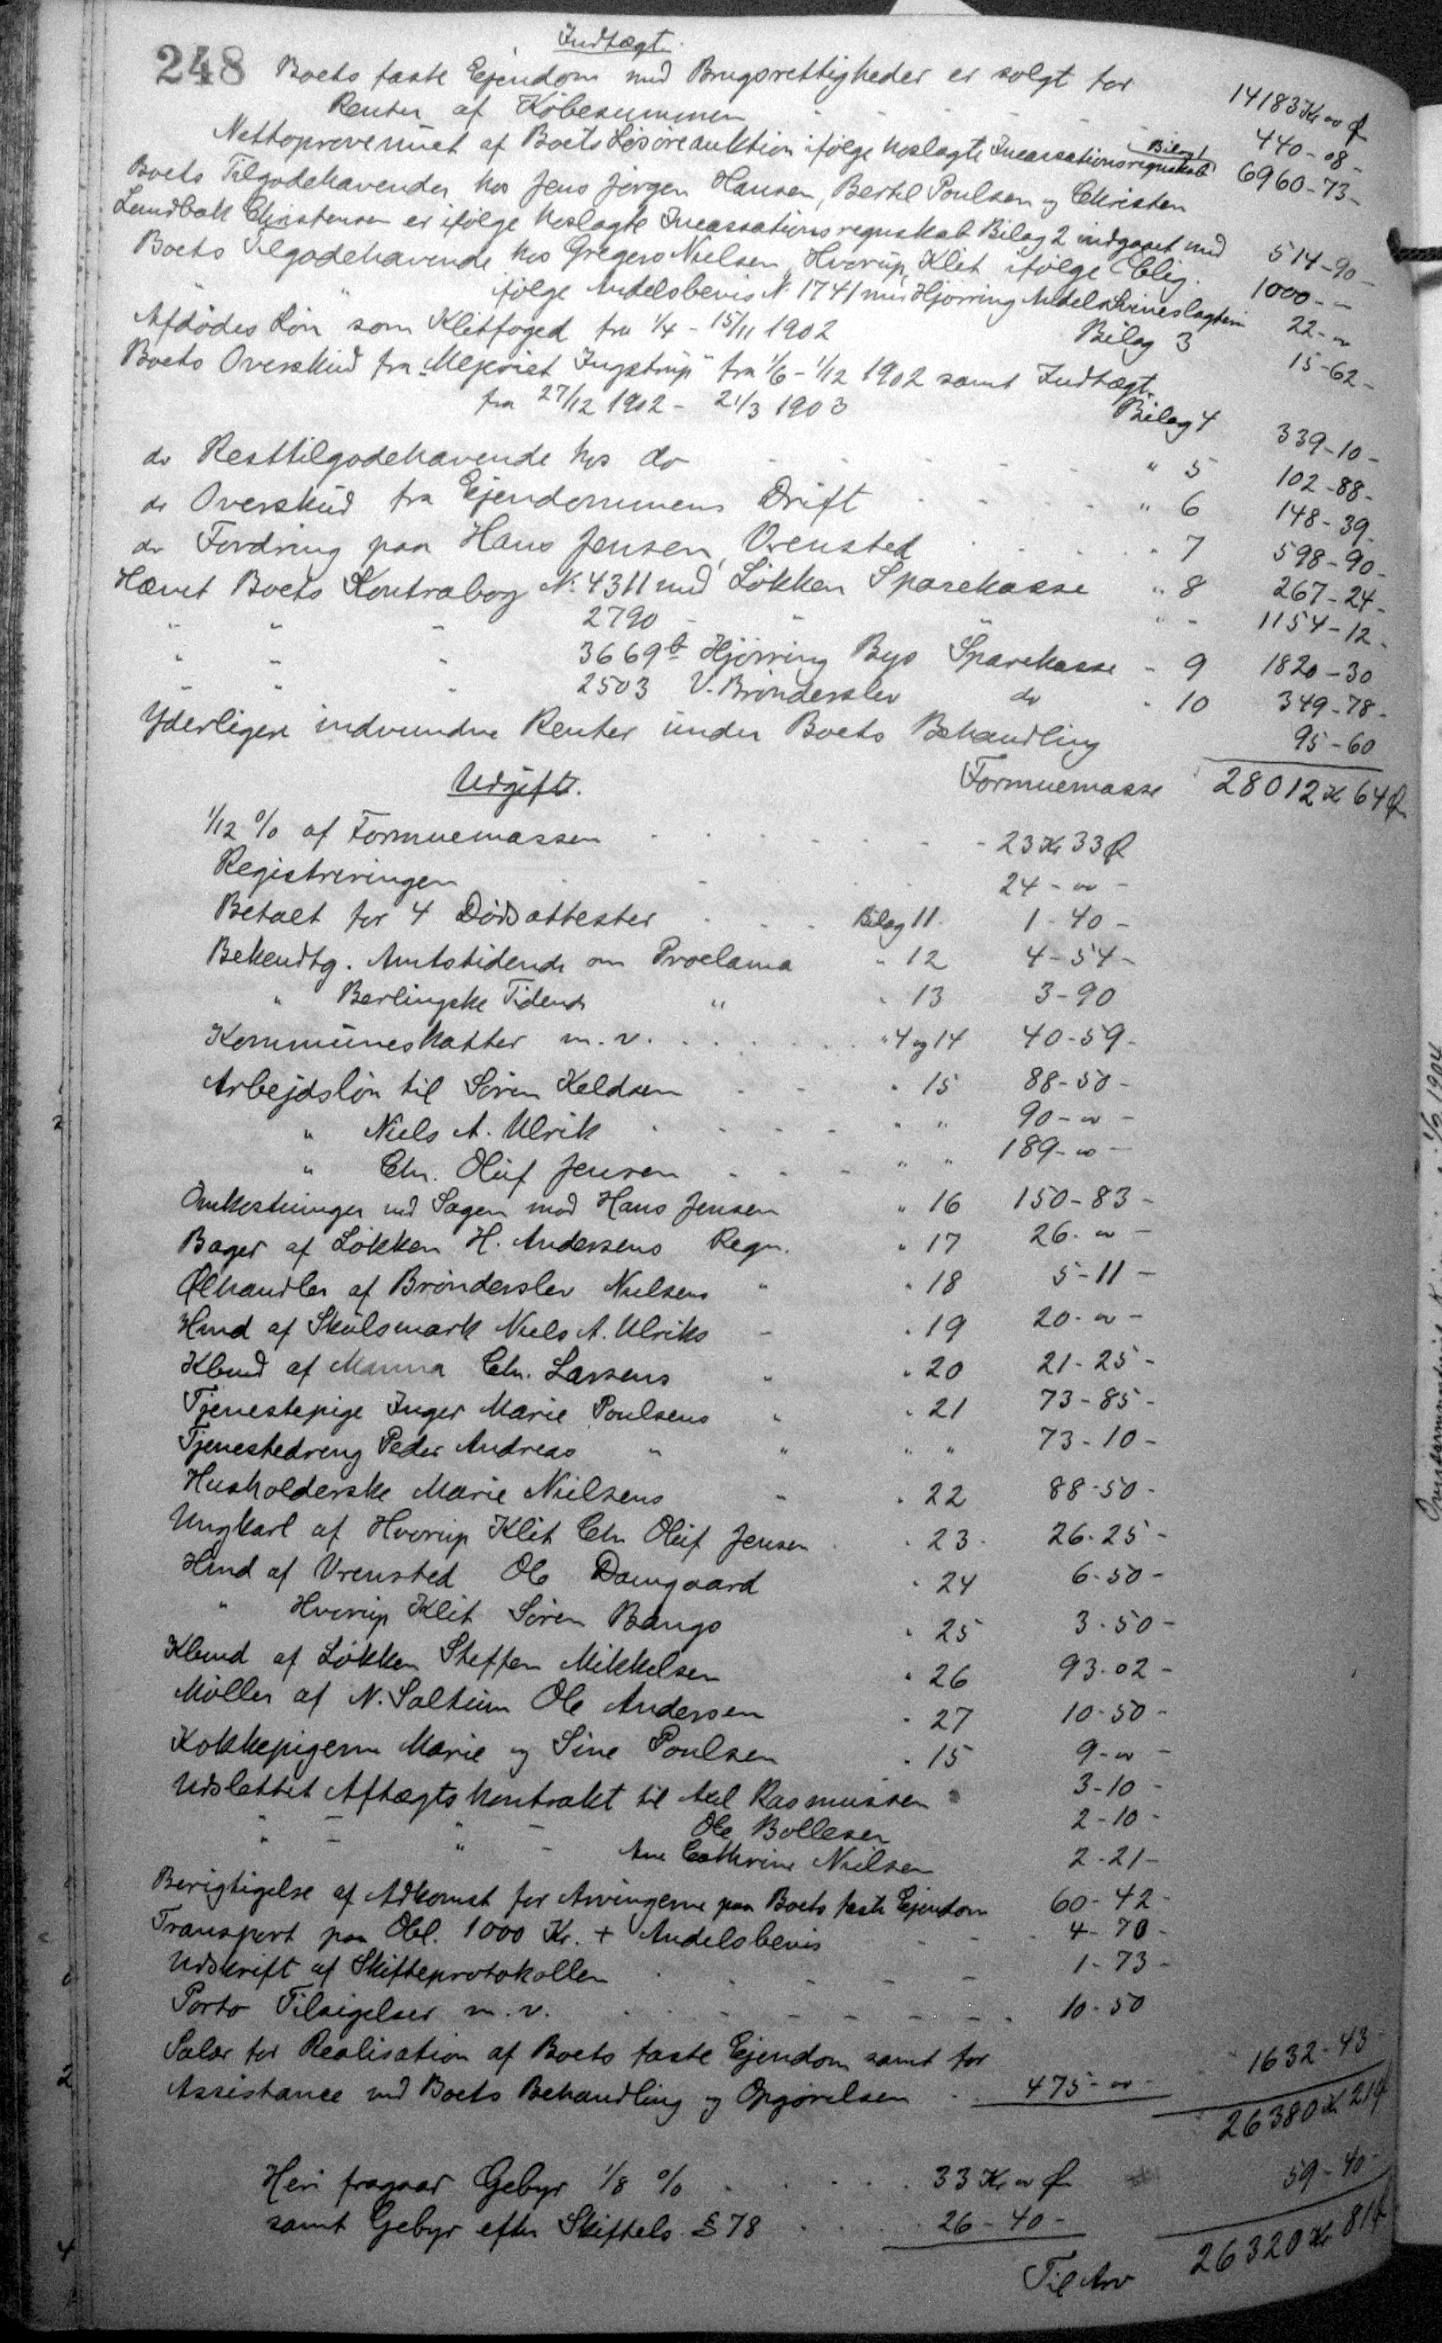 Indtægt.
248 Boets faste Ejendom med Brugsrettigheder er solgt for 14183 Kr "" Ø
Renter af Købesummen - - - 440-08-
Nettoprovenuet af Boets Løsøreauktion ifølge hoslagte Incassationsregnskab Bilag 1 6960-73-
Boets Tilgodehavender hos Jens Jørgen Hansen, Bertel Poulsen og Christen
Lundbak Christensen er ifølge hoslagte Incassationsregnskab Bilag 2 indgaaet med 514-90-
Boets Tilgodehavende hos Gregers Nielsen, Hvorup Klit ifølge Oblig. 1000- -
" " ifølge Andelsbevis N. 1741 mis Hjørring Andels Svineslagteri 22- "
Afdødes Løn som Klitfoged fra 1/4 - 15/11 1902 Bilag 3 15-62-
Boets Overskud fra "Mejeriet Ingstrup" fra 1/6 - 1/12 1902 samt Indtægt
fra 27/12 1902 - 21/3 1903 Bilag 4 339-10-
do Resttilgodehavende hos do " 5 102-88-
do Overskud fra Ejendommens Drift " 6 148-39-
do Fordring paa Hans Jensen, Vrensted " 7 598-90-
Hævet Boets Kontrabog N. 4311 med Løkken Sparekasse " 8 267-24-
" " - 2790 - " " " - 1154-12-
" - - 3669b Hjørring Bys Sparekasse - 9 1820-30
" " - 2503 V. Brønderslev do - 10 349-78-
Yderligere indvundne Renter under Boets Behandling 95-60
Formuemasse 28012 K 64 Ø
Udgift.
1/12 % af Formuemassen - 23 Kr 33 Ø
Registreringen 24 - " -
Betalt for 4 Dødsattester Bilag 11. 1-40-
Bekendtg. Amtstidende om Proclama " 12 4-54-
" Berlingske Tidende " " 13 3-90
Kommuneskatter m.v. " 4 og 14 40-59-
Arbejdsløn til Søren Keldsen " 15 88-50-
" Niels A. Ulrik " " 90- " -
" Chr. Oluf Jensen " " 189- " -
Omkostninger ved Sagen mod Hans Jensen " 16 150-83-
Bager af Løkken H. Andersens Regn. " 17 26. " -
Ølhandler af Brønderslev Nielsens " " 18 5-11-
Hmd af Skølsmark Niels A. Ulriks - " 19 20. " -
Kbmd af Manna Chr. Larsens " " 20 21-25-
Tjenestepige Inger Marie Poulsens " " 21 73-85-
Tjenestedreng Peder Andreas " " " " 73-10-
Husholderske Marie Nielsens - " 22 88-50-
Ungkarl af Hvorup Klit Chr Oluf Jensen " 23. 26-25-
Hmd af Vrensted Ole Damgaard " 24 6-50-
" Hvorup Klit Søren Bangs " 25 3-50-
Kbmd af Løkken Steffen Mikkelsen " 26 93-02-
Møller af N. Saltum Ole Andersen " 27 10-50-
Kokkepigerne Marie og Sine Poulsen " 15 9- " -
Udslettet Aftægtskontrakt til Axel Rasmussen 3-10-
" - " - Ole Bollesen 2-10-
Ane Cathrine Nielsen 2-21-
Berigtigelse af Adkomst for Arvingerne paa Boets faste Ejendom 60-42-
Transport paa Obl. 1000 Kr. + Andelsbevis 4-70-
Udskrift af Skifteprotokollen 1-73-
Porto Tilsigelser m.v. 10-50
Salær for Realisation af Boets faste Ejendom samt for
Assistance ved Boets Behandling og Opgørelsen 475- " - 1632-43-
26380 K 21 Ø
Heri fragaar Gebyr 1/8 % 33 Kr " Ø
samt Gebyr efter Skiftels. § 78 26-40- 59-40-
Til Arv 26320 Kr 81 Ø